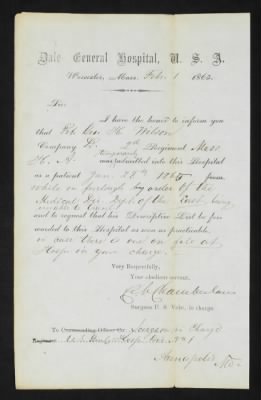 Dale General Hospital, U. S. A.
Worcester, Mass. Feb. 1 1865.
Sir:
I have the honor to inform you
that Pvt Geo. H. Wilson
Company L. 4th Regiment Mass
H. A. temporarily was admitted into this Hospital
as a patient Jan. 28th 1865 from
while on furlough by order of the
Medical Dir. Dept. of the East, being
unable to travel
and to request that his Descriptive List be for-
warded to this Hospital as soon as practicable,
in case there is one on file at
Hosp. in your charge.
Very Respectfully,
Your obedient servant,
Chamberlain
Surgeon U. S. Vols., in charge.
To Commanding Officer Co. Surgeon in Charge
Regiment U.S. Genl Hosp. Div. No 1
Annapolis Md.